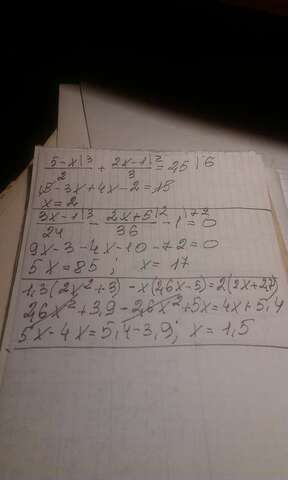 5-x|3/2 + 2x-1|2/3 = 2,5|6
15-3x+4x-2=15
x=2
3x-1|3/24 - 2x+5|2/36 - 1|72 = 0
9x-3-4x-10-72=0
5x=85; x=17
1,3(2x²+3)-x(2,6x-5)=2(2x+2,7)
2,6x²+3,9-2,6x²+5x=4x+5,4
5x-4x=5,4-3,9; x=1,5